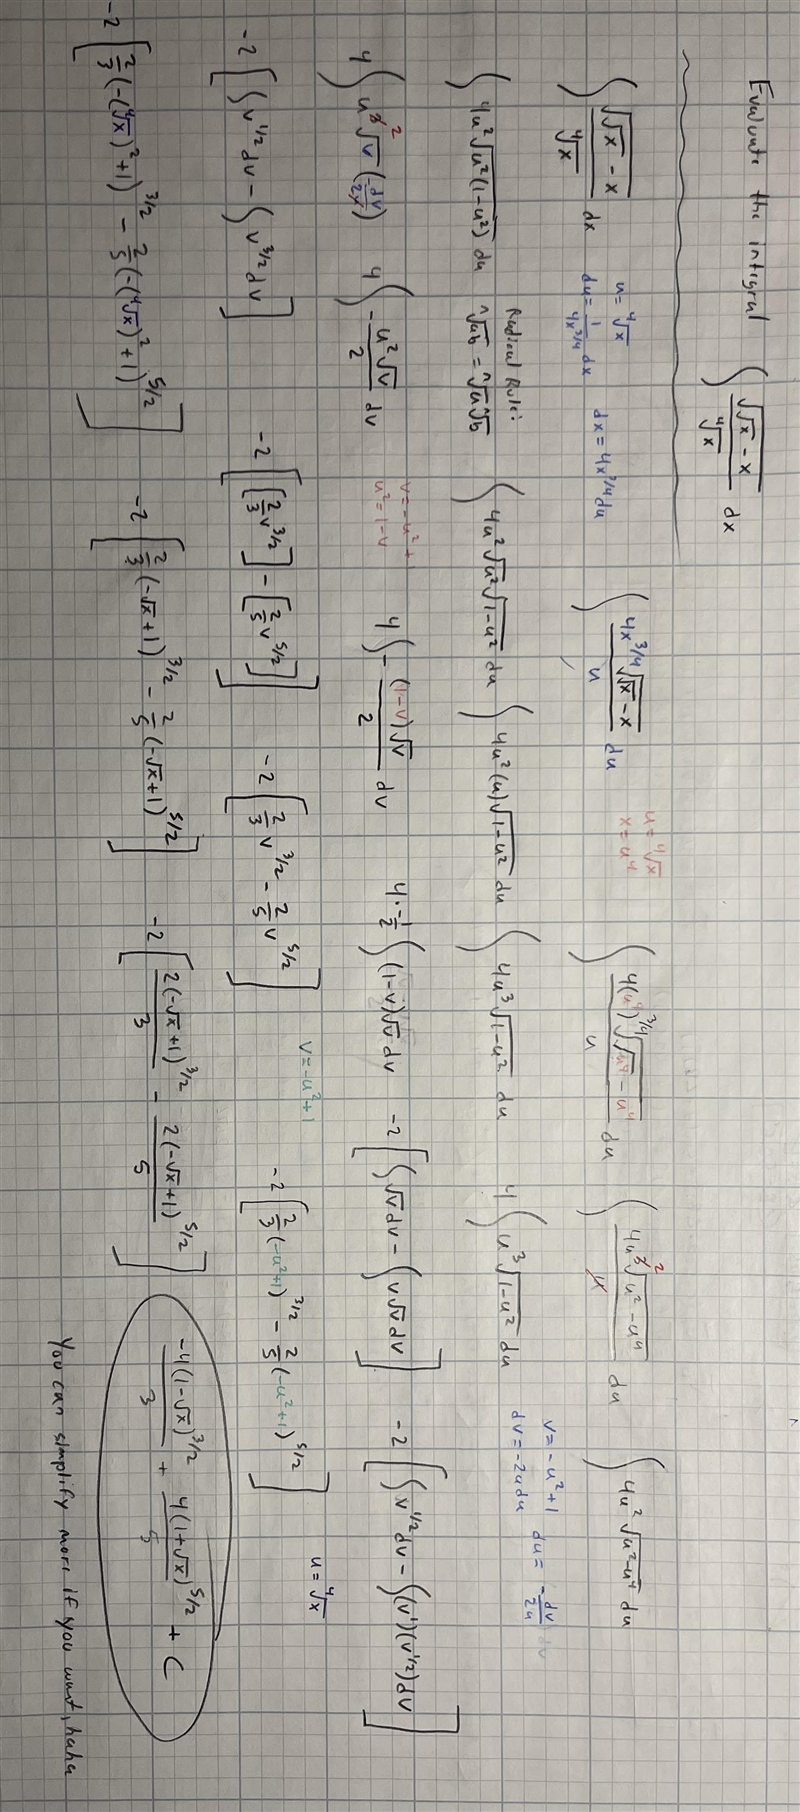 Evaluate the intigral ∫ √(√x - x)/∜x dx
∫ √(√x - x)/∜x dx   u = ∜x   du = 1/(4x^(3/4)) dx   dx = 4x^(3/4) du   ∫ 4x^(3/4) √(√x - x)/u du   u = ∜x   x = u⁴   ∫ 4(u⁴)^(3/4) √(√u⁴ - u⁴)/u du   ∫ 4u³ ² √(u² - u⁴)/u du   ∫ 4u² √(u² - u⁴) du
∫ 4u² √(u²(1 - u²)) du   Radical Rule: ⁿ√ab = ⁿ√a ⁿ√b   ∫ 4u² √u² √(1 - u²) du   ∫ 4u² (u) √(1 - u²) du   ∫ 4u³ √(1 - u²) du   4 ∫ u³ √(1 - u²) du   v = -u² + 1   dv = -2u du   du = -dv/2u
4 ∫ u³ ² √v (-dv/2u)   4 ∫ - u²√v/2 dv   v = -u² +   u² = 1 - v   4 ∫ - (1 - v)√v/2 dv   4 · -1/2 ∫ (1 - v)√v dv   -2 [∫ √v dv - ∫ v√v dv]   -2 [∫ v^(1/2) dv - ∫ (v¹)(v^(1/2)) dv]
-2 [∫ v^(1/2) dv - ∫ v^(3/2) dv]   -2 [[2/3 v^(3/2)] - [2/5 v^(5/2)]]   -2 [2/3 v^(3/2) - 2/5 v^(5/2)]   v = -u² + 1   -2 [2/3 (-u² + 1)^(3/2) - 2/5 (-u² + 1)^(5/2)]   u = ∜x
-2 [2/3 (-(∜x)² + 1)^(3/2) - 2/5 (-(∜x)² + 1)^(5/2)]   -2 [2/3 (-√x + 1)^(3/2) - 2/5 (-√x + 1)^(5/2)]   -2 [2(-√x + 1)^(3/2)/3 - 2(-√x + 1)^(5/2)/5]   -4(1 - √x)^(3/2)/3 + 4(1 + √x)^(5/2)/5 + C
You can simplify more if you want, haha